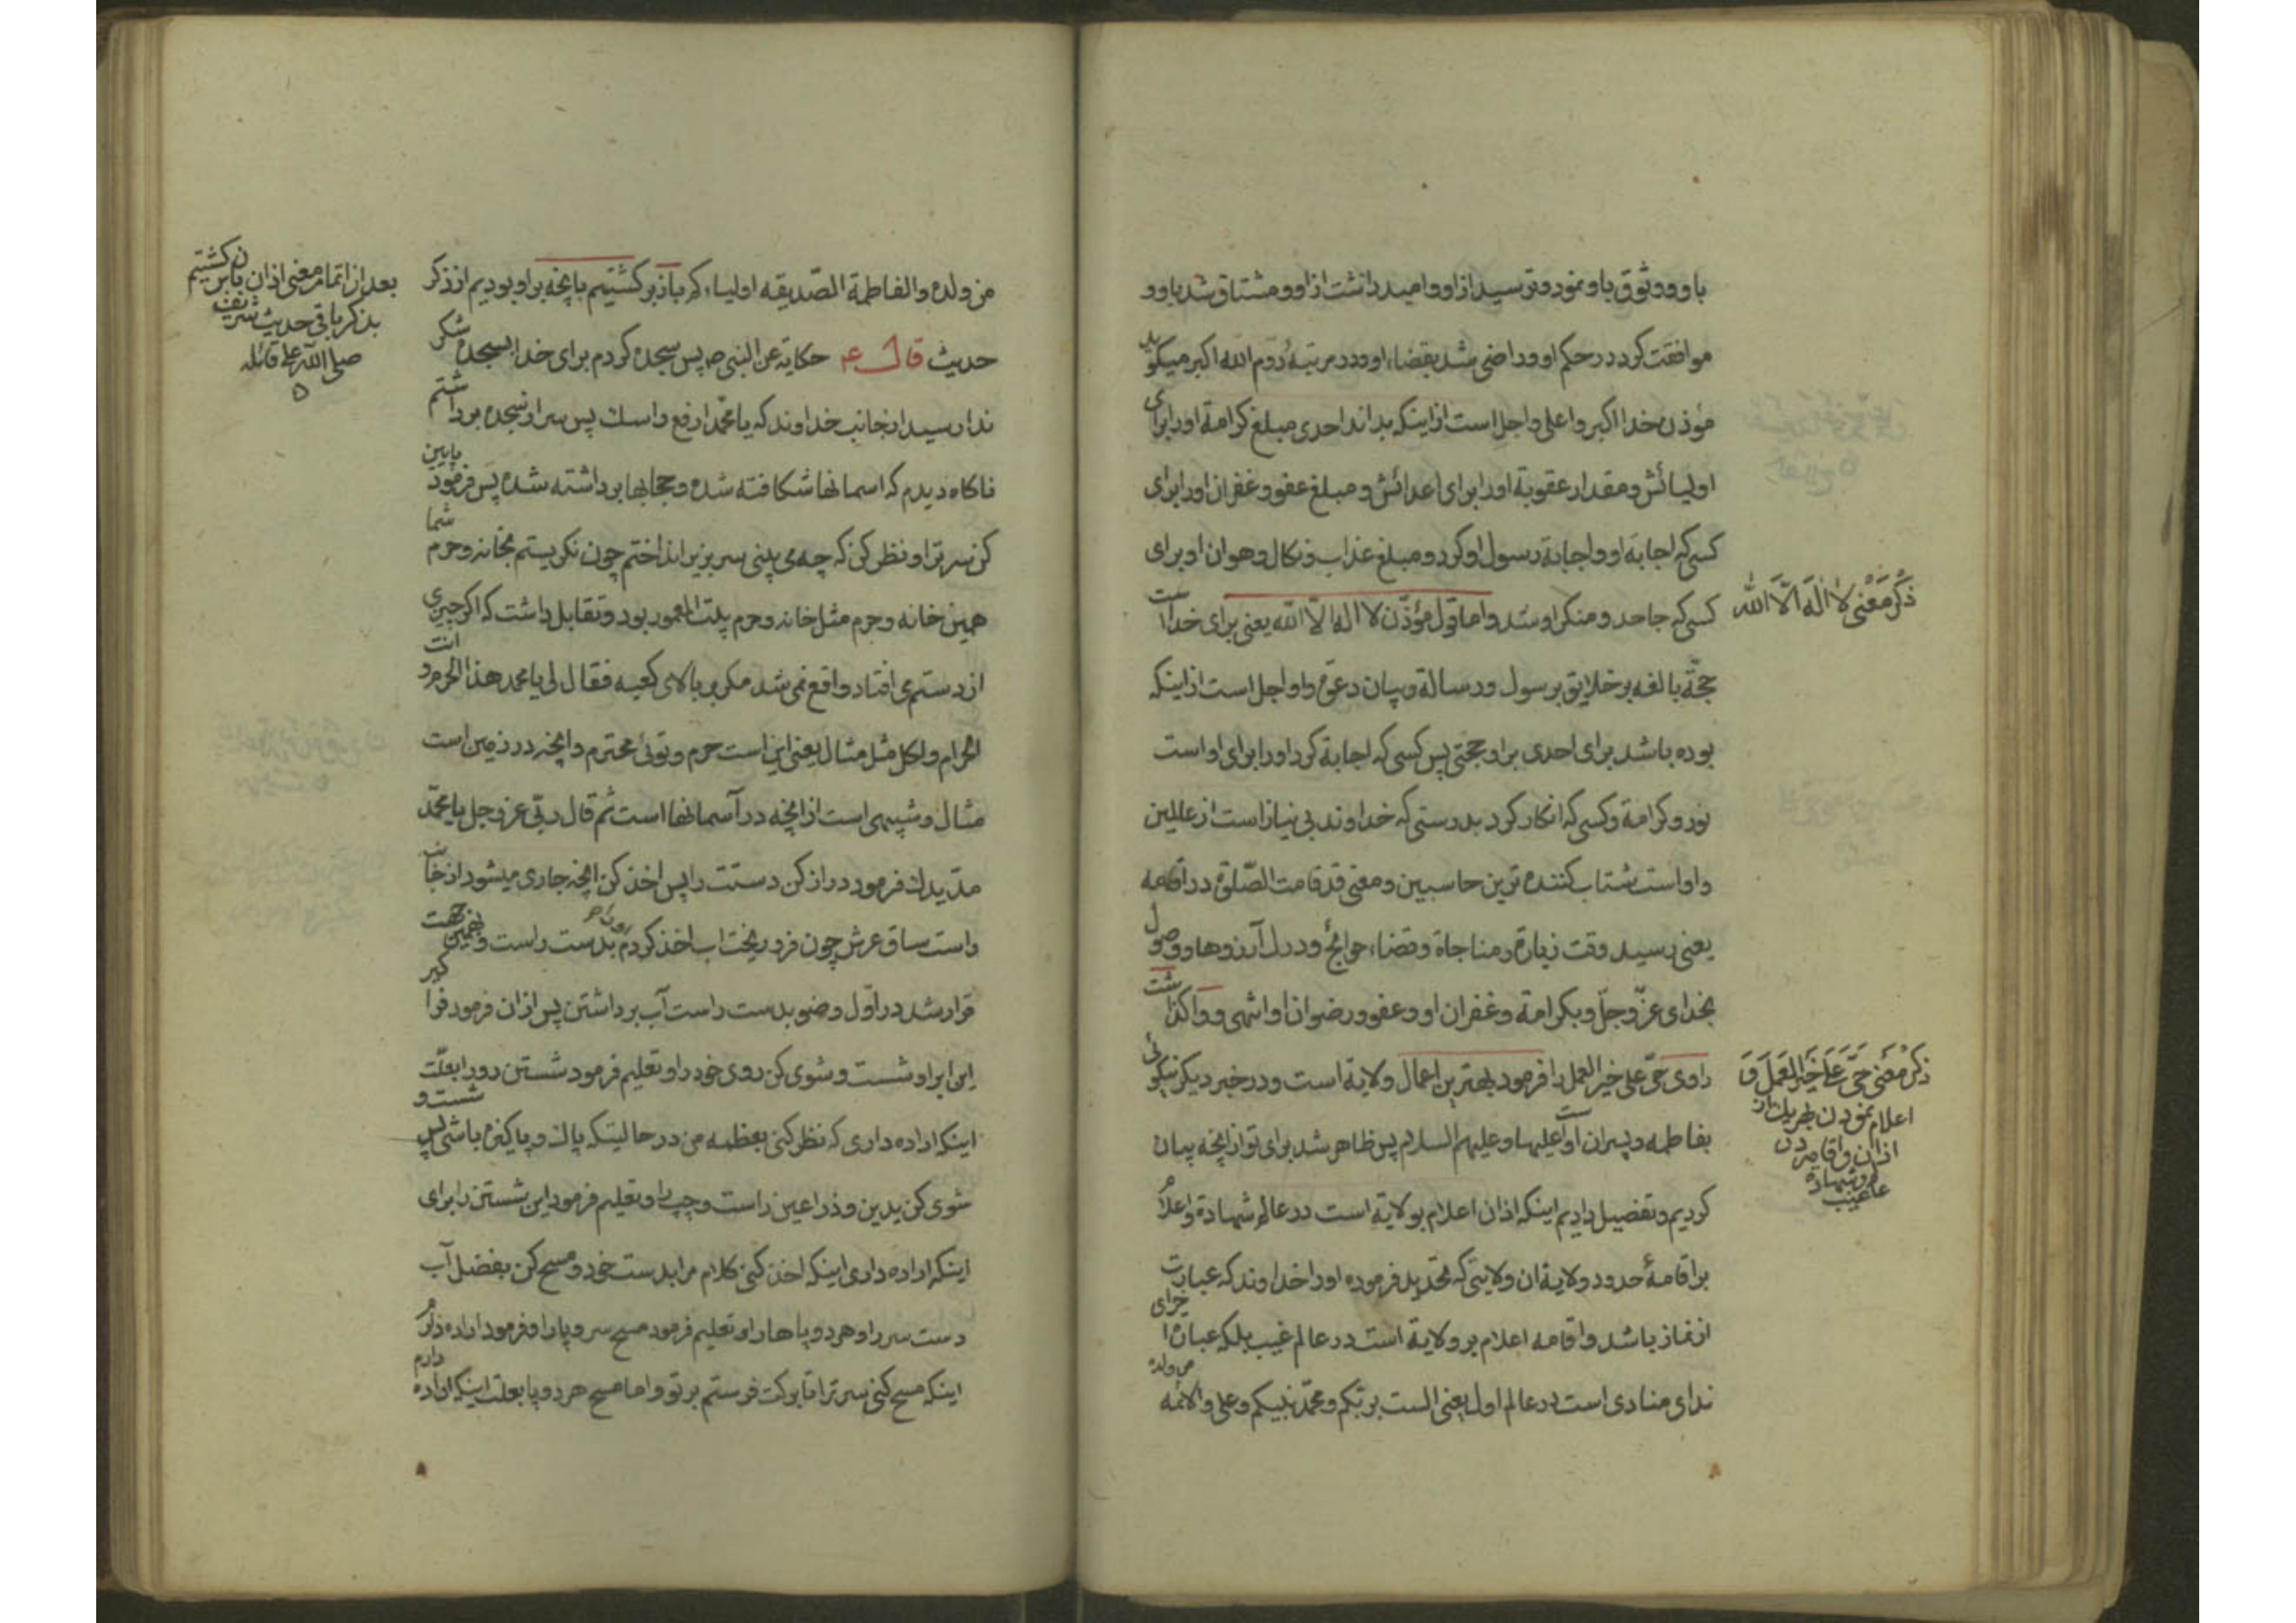 باو و وثوق باو نمود و ترسید از او و امید داشت از او و مشتاق شد باو و
موافقت کرد در حکم او و راضی شد بقضاء او و در مرتبهٔ دوم الله اکبر میکوید
مؤذن خدا اکبر و اعلی و اجل است از اینکه بداند احدی مبلغ کرامة او را برای
اولیائش و مقدار عقوبة او را برای اعدائش و مبلغ عفو و غفران او را برای
کسی که اجابه او و اجابة رسول او کرد و مبلغ عذاب و نکال و هوان او برای
کسی که جاحد و منکر او شد و اما قول مؤذّن لا اله الّا الله یعنی برای خدا است
ذکر معنی لا اله الّا الله
حجّة بالغه بر خلایق برسول و رسالة و بیان و دعوة و او اجل است از اینکه
بوده باشد برای احدی بر او حجتی پس کسی که اجابة کرد او را برای او است
نور و کرامة و کسی که انکار کرد بدرستی که خداوند بی نیاز است از عالمین
و او است شتاب کننده ترین حاسبین و معنی قد قامت الصّلوة در اقامه
یعنی رسید وقت زیارة و مناجاة و قضاء حوائج و درک آرزوها و وصول
بخدای عزّ و جلّ و بکرامة و غفران او و عفو و رضوان او انتهی و واکذاشت
راوی حیّ علی خیر العمل را فرمود بهترین اعمال ولایة است و در خبر دیکر نیکوئی
ذکر معنی حیّ علی خیر العمل و
اعلام نمودن هر یک از
اذان و اقامه در
عالم غیب و شهاده
بفاطمه و پسران او است علیها و علیهم السلام پس ظاهر شد برای تو از آنچه بیان
کردیم و تفضیل دادیم اینکه اذان اعلام بولایة است در عالم شهادة و اعلام
بر اقامهٔ حدود ولایة ان ولایتی که تحدید فرموده او را خداوند که عبارت
از نماز باشد و اقامه اعلام بر ولایة است در عالم غیب بلکه عبارة اخرای
ندای منادی است در عالم اول یعنی الست بربّکم و محمّد نبیکم و علی و الائمه من ولده
من ولده و الفاطمة الصّدیقه اولیاءکم باز برکشتیم بانچه بر او بودیم از ذکر
بعد از اتمام معنی اذان باز برکشتیم
بذکر باقی حدیث شریف
صلی الله علی قائله
۵
حدیث قال ع حکایة عن النبی ص پس سجده کردم برای خدا بسجده شکر
ندا رسید از جانب خداوند که یا محمّد ارفع راسک پس سر از سجده برداشتم
ناکاه دیدم که اسمانها شکافته شده و حجابها برداشته شده پس فرمود پایین
کن سر ترا و نظر کن که چه می بینی سر بزیر انداختم چون نکریستم بخانه و حرم شما
همین خانه و حرم مثل خانه و حرم بیت المعمور بود و تقابل داشت که اکر چیزی
از دستم می افتاد واقع نمی شد مکر بر بالای کعبه فقال لی یا محمد هذا الحرم و انت
الحرام و لکل مثل مثال یعنی این است حرم و توئی محترم و انچه در زمین است
مثال و شبیهی است از انچه در آسمانها است ثم قال ربّی عز و جل یا محمّد
مدّ یدک فرمود دراز کن دستت را پس اخذ کن انچه جاری میشود از جانب
راست ساق عرش چون فرو ریخت اب اخذ کردم بدست راست و بهمین جهت
قرار شد در اوّل وضو بدست راست آب برداشتن پس از ان فرمود فرا کیر
این اب را و شست و شوی کن روی خود را و تعلیم فرمود شستن رو را بعلّت
اینکه اراده داری که نظر کنی بعظمه من در حالیتکه پاک و پاکیزه باشی پس شست و
شوی کن یدین و ذراعین راست و چپ را و تعلیم فرمود این شستن را برای
اینکه اراده داری اینکه اخذ کنی کلام مرا بدست خود و مسح کن بفضل آب
دست سر را و هر دو پاها را و تعلیم فرمود مسح سر و پا را و فرمود اراده دارم
اینکه مسح کنی سر ترا تا برکت فرستم بر تو و اما مسح هر دو پا بعلت اینکه اراده دارم